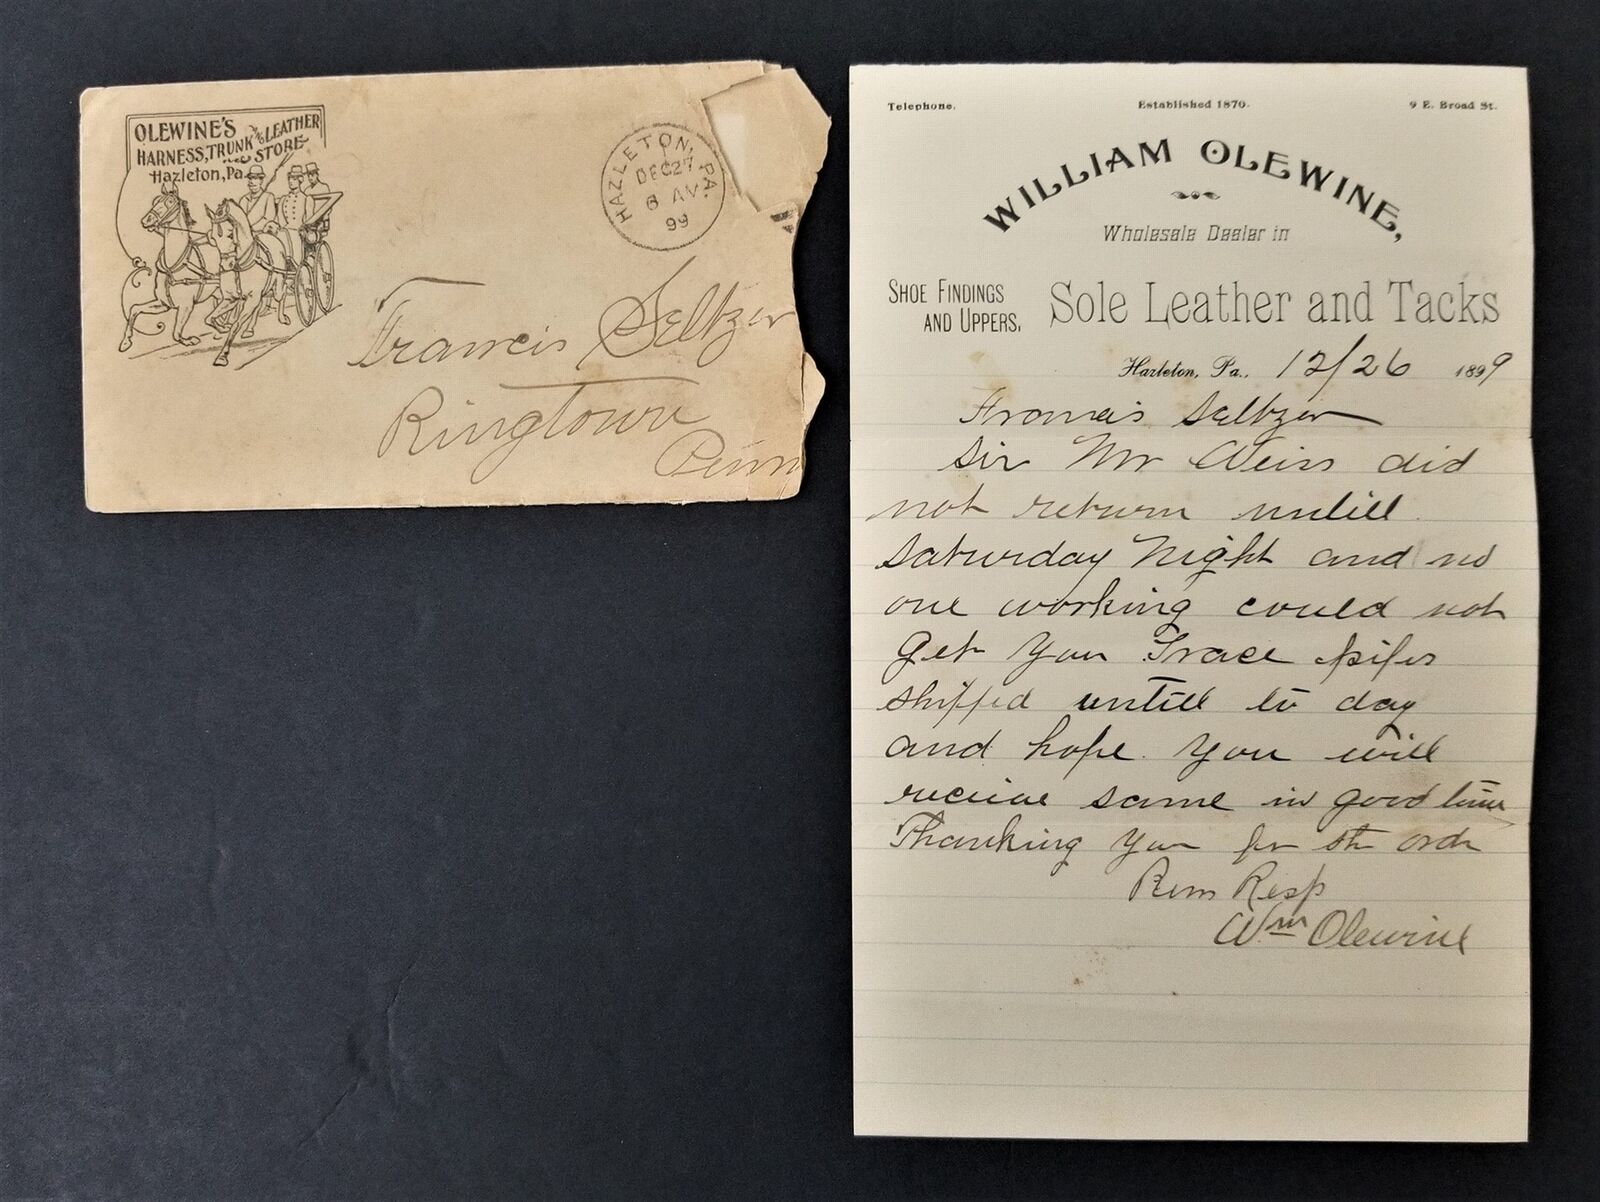 OLEWINE'S
HARNESS, TRUNK AND LEATHER
STORE
Hazleton, Pa.
HAZLETON, PA.
1
DEC 27
6 AM
99
Francis Seltzer
Ringtown
Penn
Telephone. Established 1870. 9 E. Broad St.
WILLIAM OLEWINE,
Wholesale Dealer in
SHOE FINDINGS
AND UPPERS,
Sole Leather and Tacks
Hazleton, Pa., 12/26 1899
Francis Seltzer
Sir Mr Weiss did
not return untill
Saturday Night and no
one working could not
get your Trace pipes
shipped untill to day
and hope you will
receive same in good time
Thanking you for the order
Rem Resp
Wm Olewine